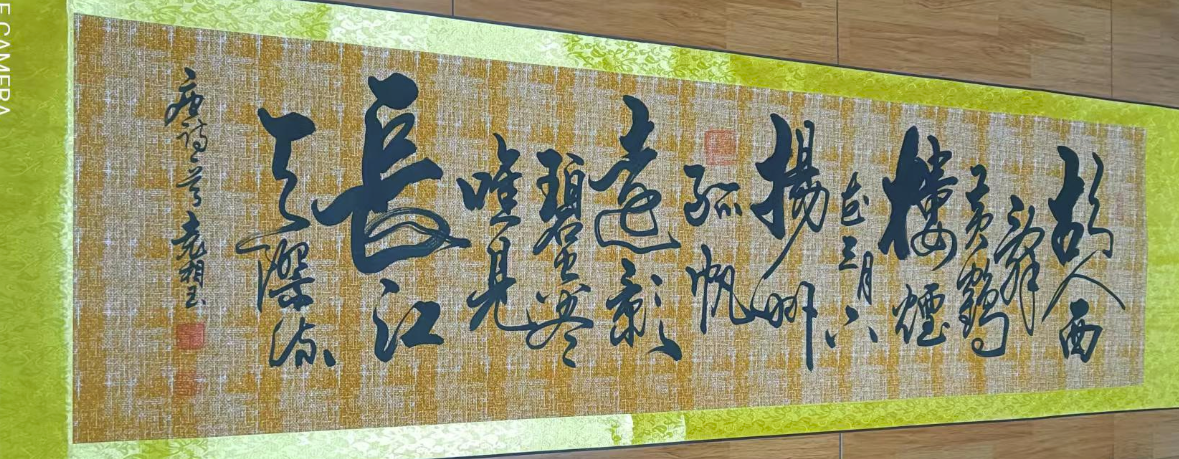 故人西
辭
黄鶴
樓煙
花三月下
揚州
孤帆
遠影
碧空尽
唯見
長江
天際流
唐詩一首袁
E CAMERA